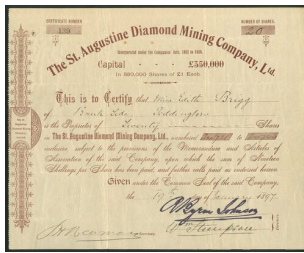 CERTIFICATE NUMBER
NUMBER OF SHARES
20
The St. Augustine Diamond Mining Company, Ltd.
Incorporated under the Companies Acts, 1862 to 1890.
Capital £550,000
In 550,000 Shares of £1 Each.
This is to Certify that Miss Edith Brigg
of Bank
is the Proprietor of Twenty Shares
in The St. Augustine Diamond Mining Company, Ltd., numbered to
inclusive subject to the provisions of the Memorandum and Articles of
Association of the said Company, upon which the sum of Nineteen
Shillings per Share has been paid, and further calls paid as endorsed hereon
Given under the Common Seal of the said Company,
the 19th day of 1897
Byron Johnson